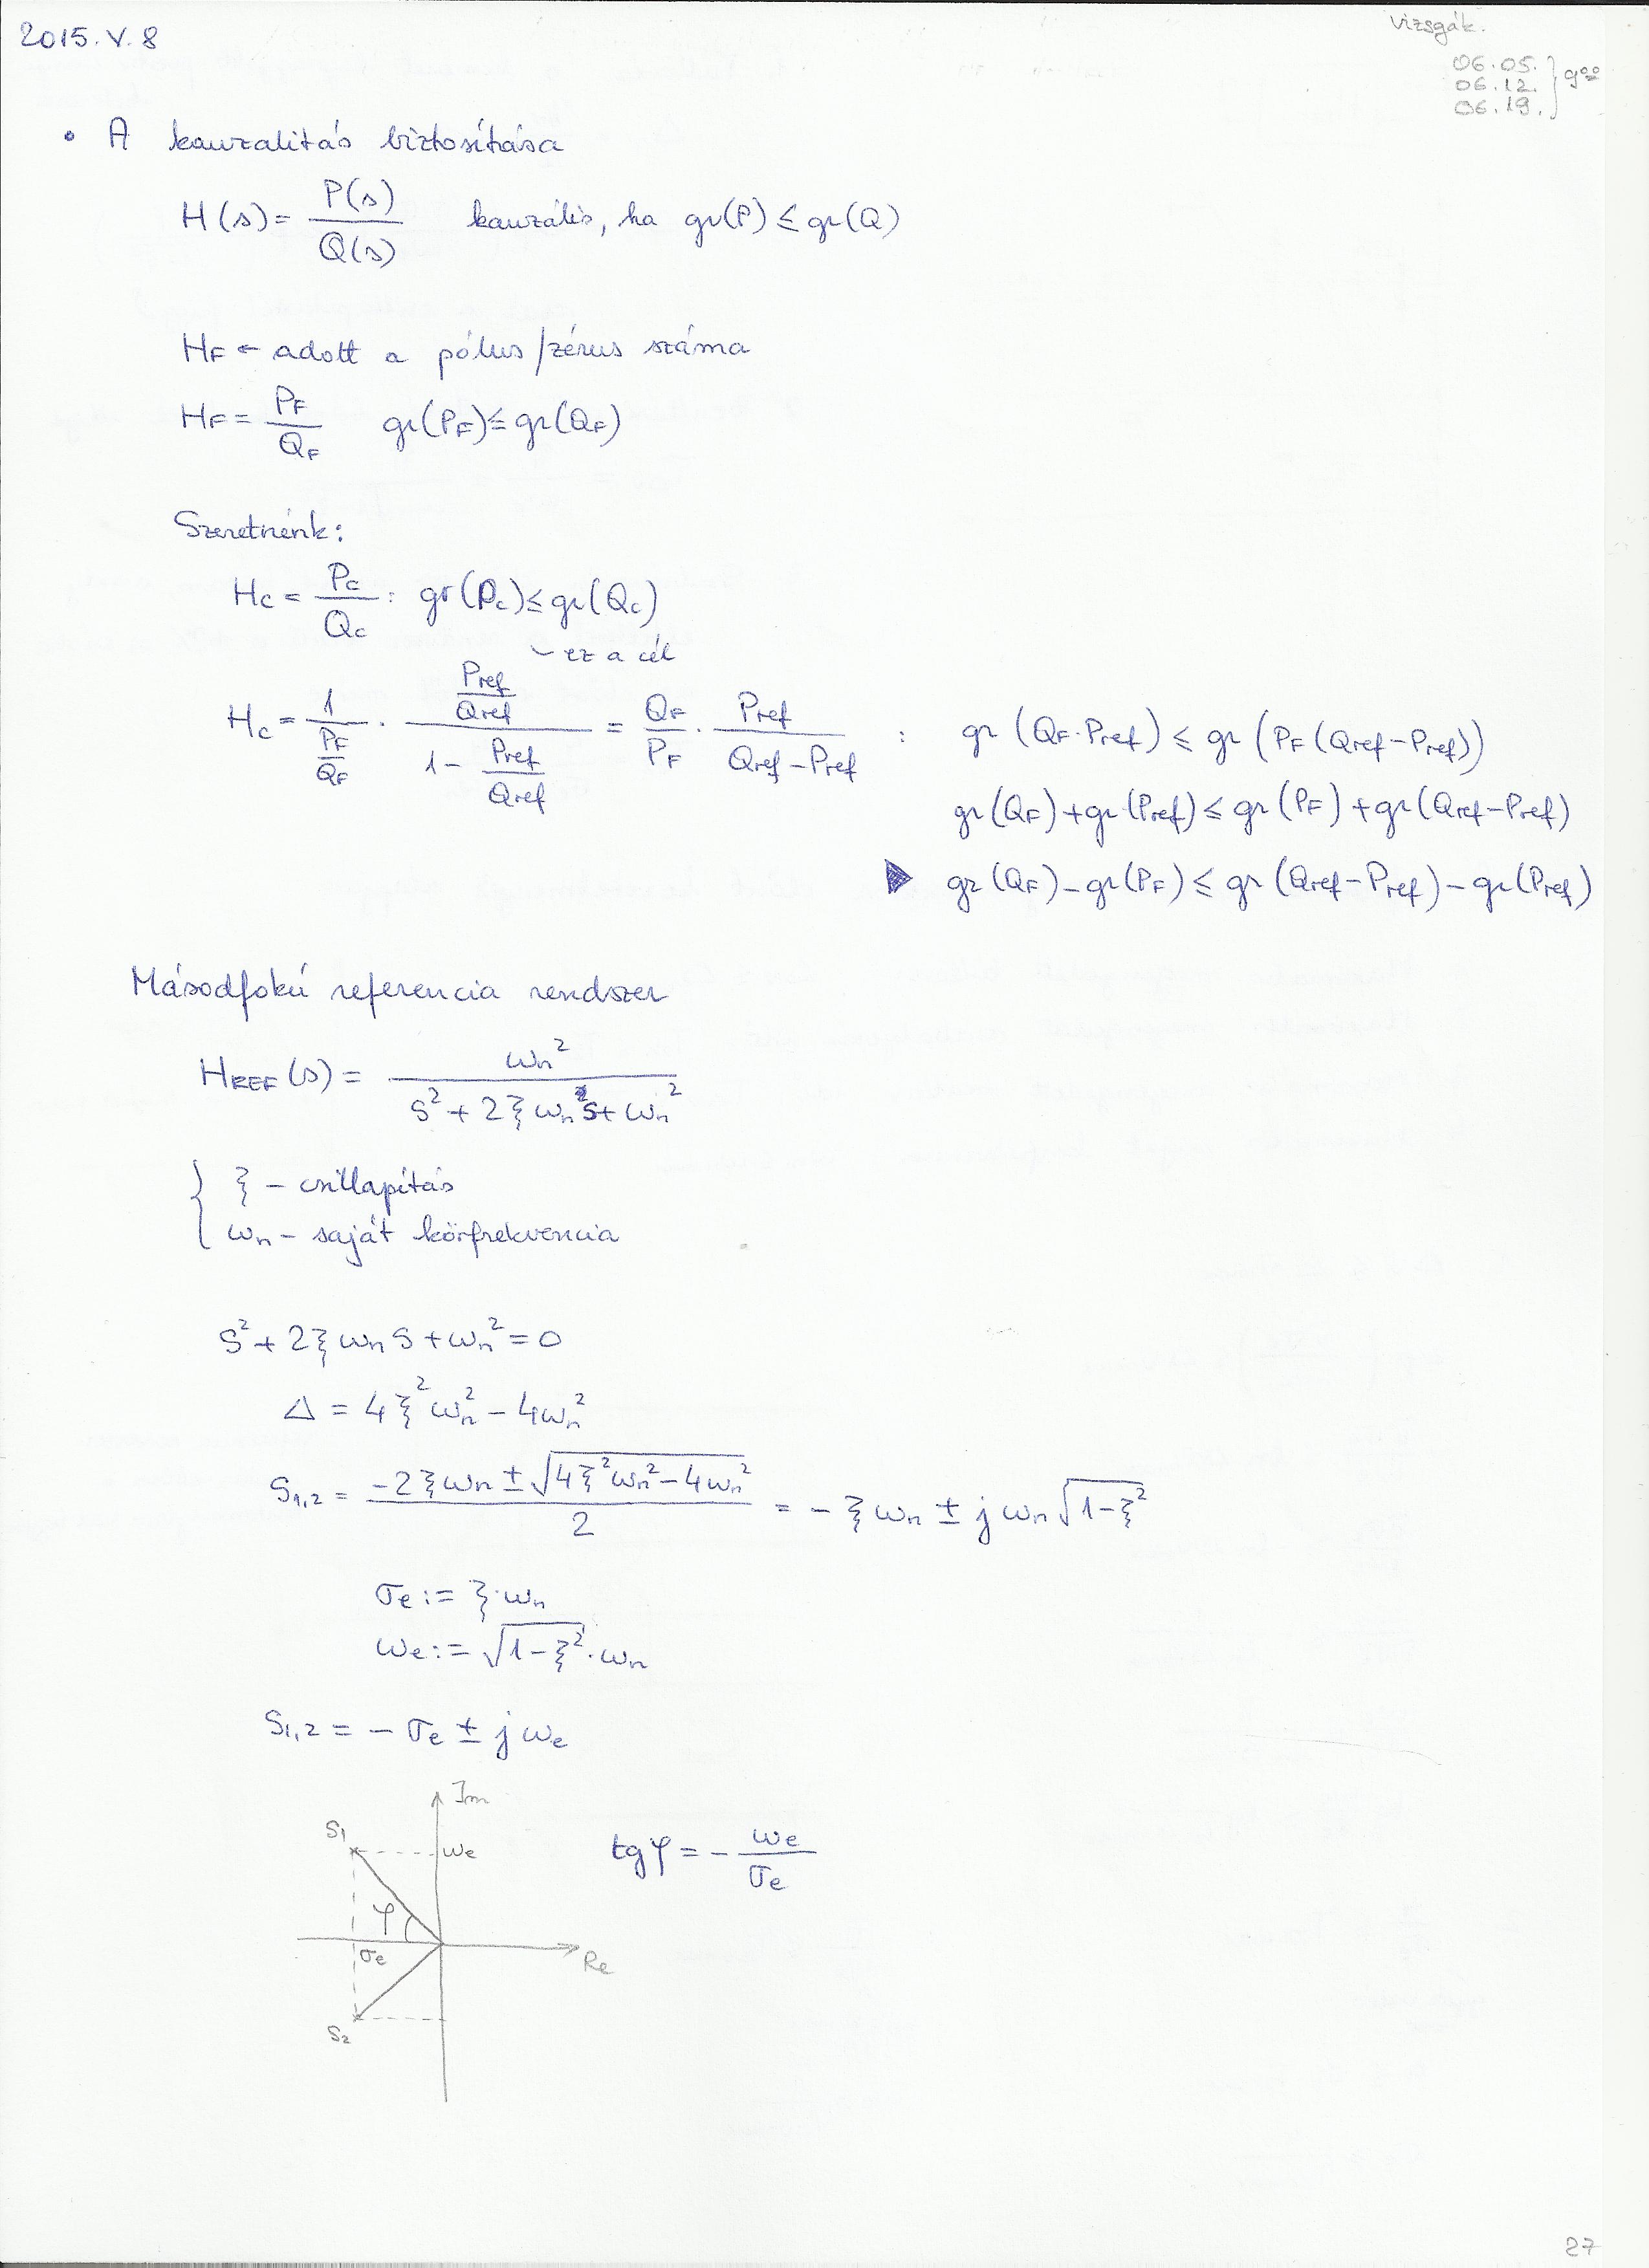 2015. V. 8
Vizsgák.
06.05.
06.12. } 9⁰⁰
06.19.
• A kauzalitás biztosítása
H(s) = P(s)/Q(s) kauzális, ha gr(P) ≤ gr(Q)
HF ← adott a pólus/zérus száma
HF = PF/QF gr(PF) ≤ gr(QF)
Szeretnénk:
Hc = Pc/Qc : gr(Pc) ≤ gr(Qc)
ez a cél
Hc = 1/(PF/QF) · (Pref/Qref)/(1 - Pref/Qref) = QF/PF · Pref/(Qref-Pref) : gr(QF·Pref) ≤ gr(PF(Qref-Pref))
gr(QF)+gr(Pref) ≤ gr(PF)+gr(Qref-Pref)
▶ gr(QF)-gr(PF) ≤ gr(Qref-Pref)-gr(Pref)
Másodfokú referencia rendszer
HREF(s) = ωn²/(s²+2ξωn s+ωn²)
{ ξ - csillapítás
ωn - saját körfrekvencia
s²+2ξωn s+ωn²=0
Δ = 4ξ²ωn² - 4ωn²
S1,2 = (-2ξωn ± √(4ξ²ωn²-4ωn²))/2 = -ξωn ± jωn√(1-ξ²)
σe := ξ·ωn
ωe := √(1-ξ²)·ωn
S1,2 = -σe ± jωe
Im
S1
ωe
tgφ = -ωe/σe
φ
σe
Re
S2
27